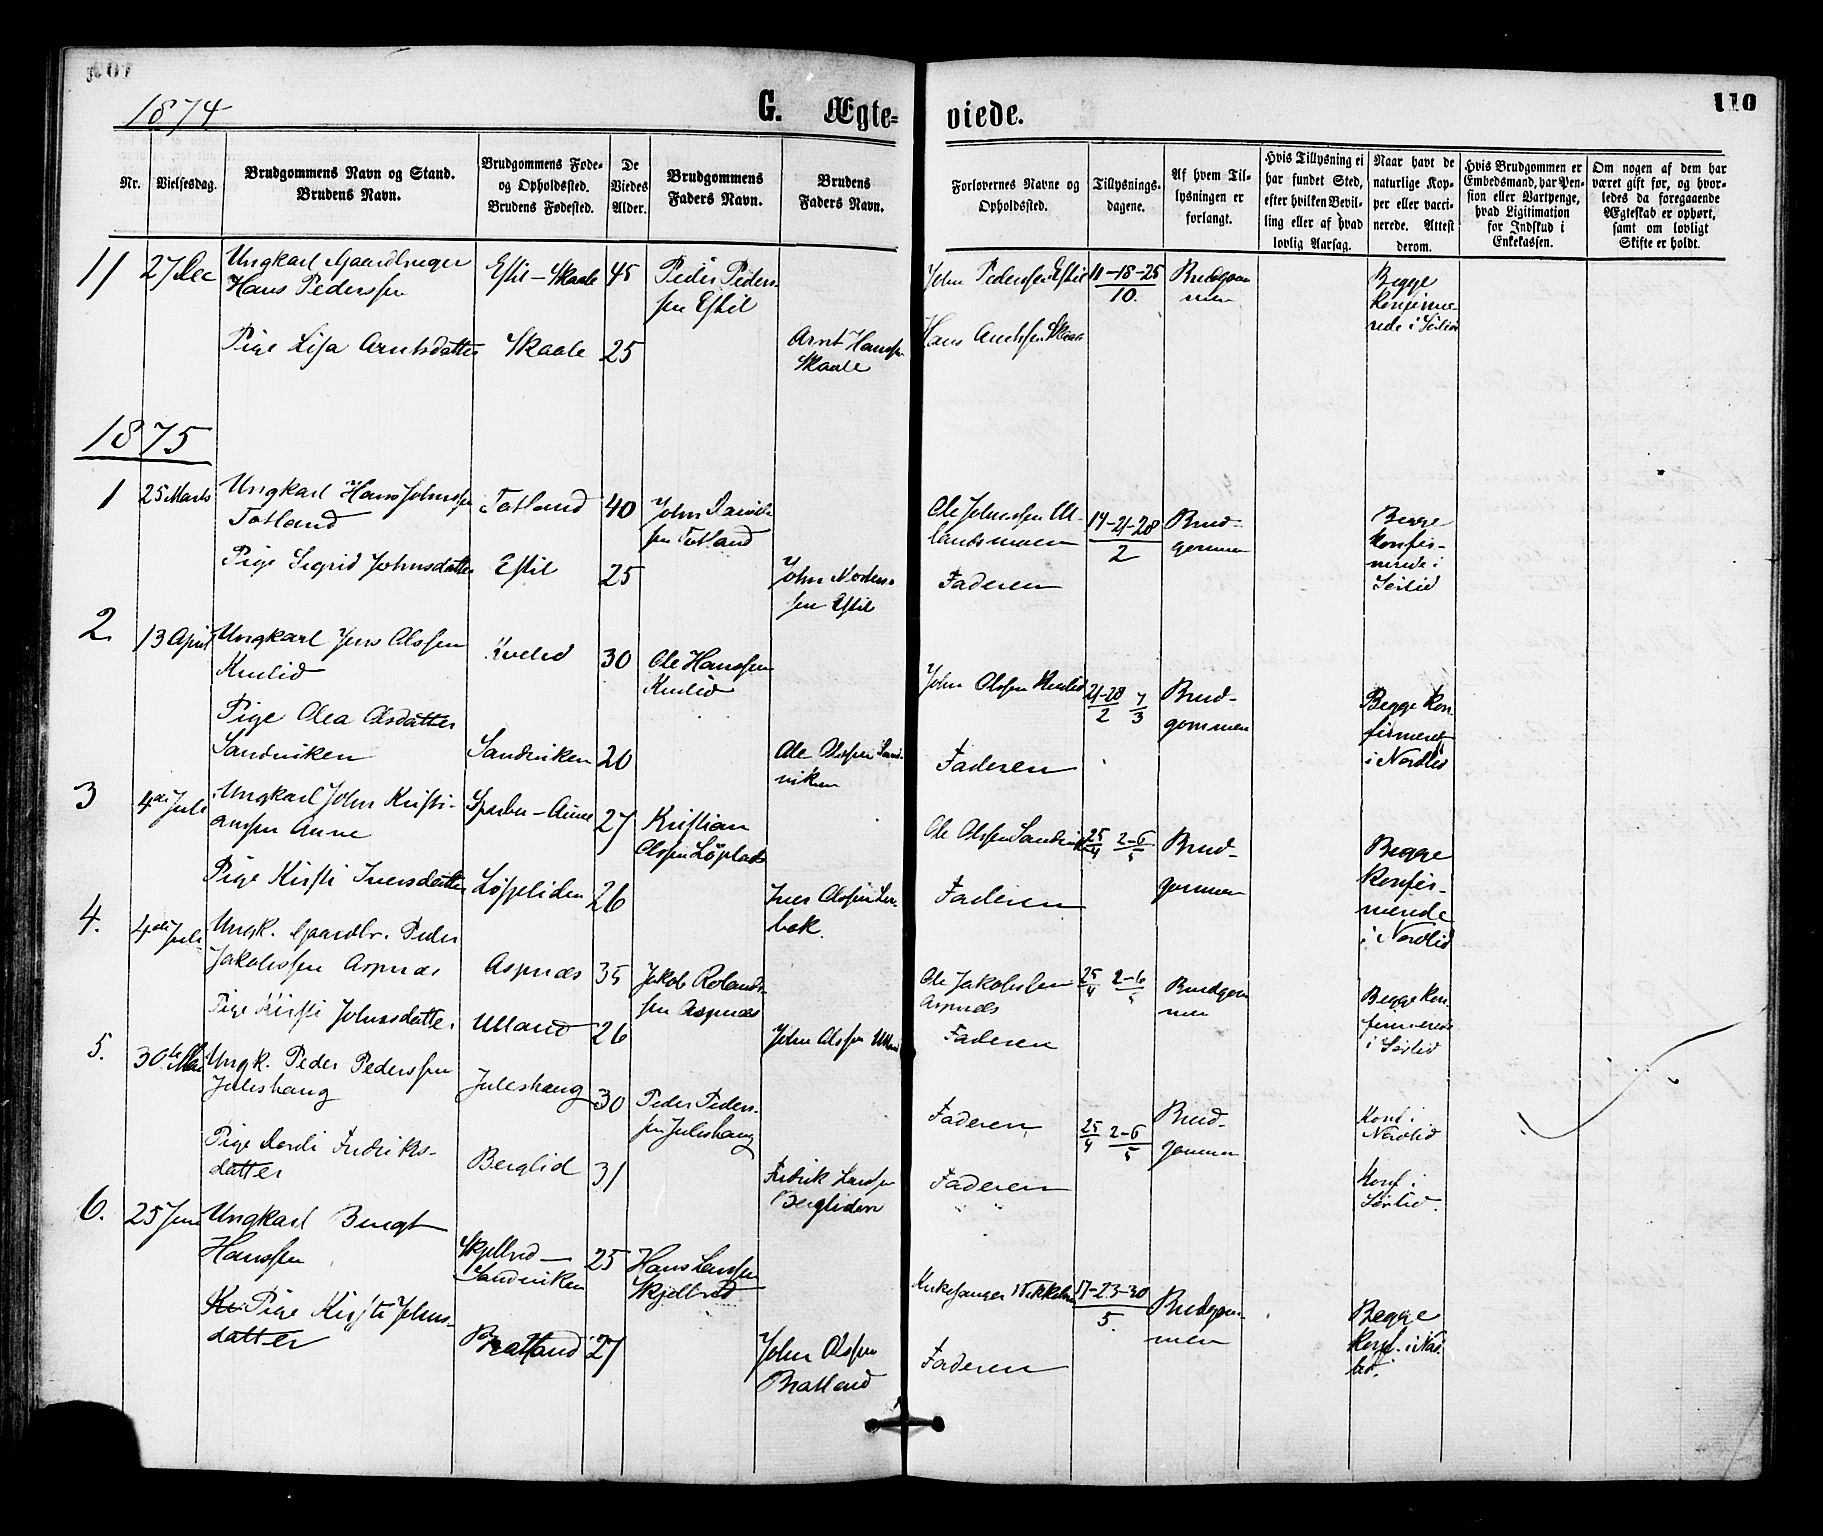 1874
G. Ægte=
viede.
110
Nr.
Vielsesdag.
Brudgommens Navn og Stand.
Brudens Navn.
Brudgommens Føde=
og Opholdssted.
Brudens Fødested.
De
Viedes
Alder.
Brudgommens
Faders Navn.
Brudens
Faders Navn.
Forlovernes Navne og
Opholdssted.
Tillysnings=
dagene.
Af hvem Til=
lysningen er
forlangt.
Hvis Tillysning ei
har fundet Sted,
efter hvilken Bevil=
ling eller af hvad
lovlig Aarsag.
Naar havt de
naturlige Kop=
per eller vacci=
nerede. Attest
derom.
Hvis Brudgommen er
Embedsmand, har Pen=
sion eller Vartpenge,
hvad Ligitimation
for Indskud i
Enkekassen.
Om nogen af dem har
været gift før, og hvor=
ledes da foregaaende
Ægteskab er ophørt,
samt om lovligt
Skifte er holdt.
11 27 Dec Ungkarl Gaardbruger
Hans Pederssen
Estil - Skaale 45 Peder Peders-
sen Estil
John Pederssen Estil 11-18-25
10.
Brudgom
men
Begge
Konfirme
rede i Sørlid
Pige Lisa Arntsdatter Skaale 25
Arnt Hanssen
Skaale
Hans Arntssen Skaale
1875
1 25 Marts Ungkarl Hans Johnssen
Totland
Totland 40 John Daniels
sen Totland
Ole Johnssen Ul-
landsmoen
14-21-28
2
Brud-
gommen
Begge
Konfir-
merede i
Sørlid
Pige Sigrid Johnsdatter Estil 25
John Mortens-
sen Estil
Faderen
2. 13 April Ungkarl Jens Olssen
Kvelid
Kvelid 30 Ole Hanssen
Kvelid
John Olssen Kvelid 21-28 7
2 3
Brud-
gommen
Begge Kon-
firmeret
i Nordlid
Pige Olea Olsdatter
Sandviken
Sandviken 20
Ole Olssen Sand-
viken
Faderen
3 4de Juli Ungkarl John Kristi-
anssen Aune
Sparbu - Aune 27 Kristian
Olssen
Ole Olssen Sandvik 25 2-6
4 5
Brud-
gommen
Begge
Konfir-
merede
i Nordlid
Pige Kirsti Iversdatter 26
Iver Olssen
bak.
Faderen
4. 4de Juli Ungk. Gaardbr. Peder
Jakobssen Aspnæs
Aspnæs 35 Jakob Rolands-
sen Aspnæs
Ole Jakobssen
Aspnæs
25 2-6
4 5
Brudgom
men
Begge Kon
firmerede
i Sørlid
Pige Kirsti Johnsdatter Ulland 26
John Olssen Ulland
Faderen
5. 30te Mai Ungk. Peder Pederssen
Juleshaug
Juleshaug 30 Peder Peders-
sen Juleshaug
Faderen
25 2-6
4 5
Brud-
gommen
Konf i
Nordlid
Pige Fredriks-
datter
Berglid 31
Fredrik Larssen
Bergliden
Faderen
Konf i
Sørlid.
6. 25 Juni Ungkarl Bengt
Hanssen
Skjelbred -
Sandviken
25 Hans Larssen
Skjelbred
Kirkesanger
17-23-30
5.
Brudgom
men
Begge
Konf. i Nord
lid.
Pige Kirsti Johns-
datter
Bratland 27
John Olssen
Bratland
Faderen